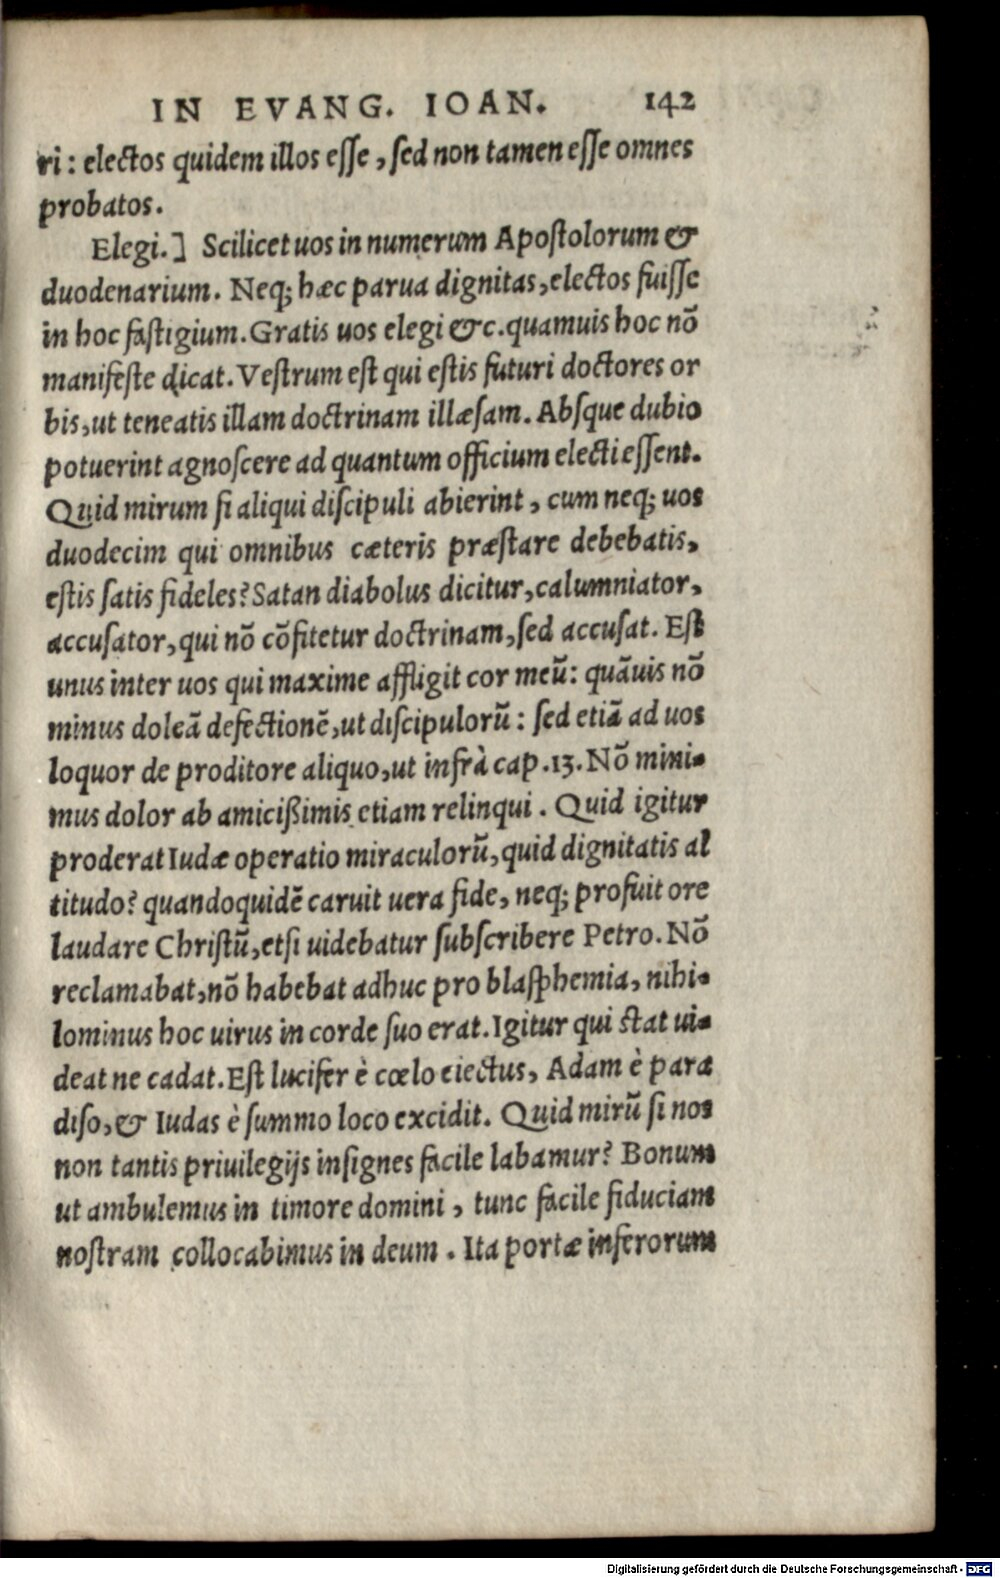 IN EVANG. IOAN. 142
ri: electos quidem illos esse, sed non tamen esse omnes
probatos.
Elegi.] Scilicet uos in numerum Apostolorum &
duodenarium. Neq; hæc parua dignitas, electos fuisse
in hoc fastigium. Gratis uos elegi &c. quamuis hoc nõ
manifeste dicat. Vestrum est qui estis futuri doctores or
bis, ut teneatis illam doctrinam illæsam. Absque dubio
potuerint agnoscere ad quantum officium electi essent.
Quid mirum si aliqui discipuli abierint, cum neq; uos
duodecim qui omnibus cæteris præstare debebatis,
estis satis fideles? Satan diabolus dicitur, calumniator,
accusator, qui nõ cõfitetur doctrinam, sed accusat. Est
unus inter uos qui maxime affligit cor meũ: quãuis nõ
minus doleã defectionẽ, ut discipulorũ: sed etiã ad uos
loquor de proditore aliquo, ut infrà cap. 13. Nõ mini-
mus dolor ab amicißimis etiam relinqui. Quid igitur
proderat Iudæ operatio miraculorũ, quid dignitatis al
titudo? quandoquidẽ caruit uera fide, neq; profuit ore
laudare Christũ, etsi uidebatur subscribere Petro. Nõ
reclamabat, nõ habebat adhuc pro blasphemia, nihi-
lominus hoc uirus in corde suo erat. Igitur qui stat ui-
deat ne cadat. Est lucifer è cœlo eiectus, Adam è para
diso, & Iudas è summo loco excidit. Quid mirũ si nos
non tantis priuilegijs insignes facile labamur? Bonum
ut ambulemus in timore domini, tunc facile fiduciam
nostram collocabimus in deum. Ita portæ inferorum
Digitalisierung gefördert durch die Deutsche Forschungsgemeinschaft - DFG